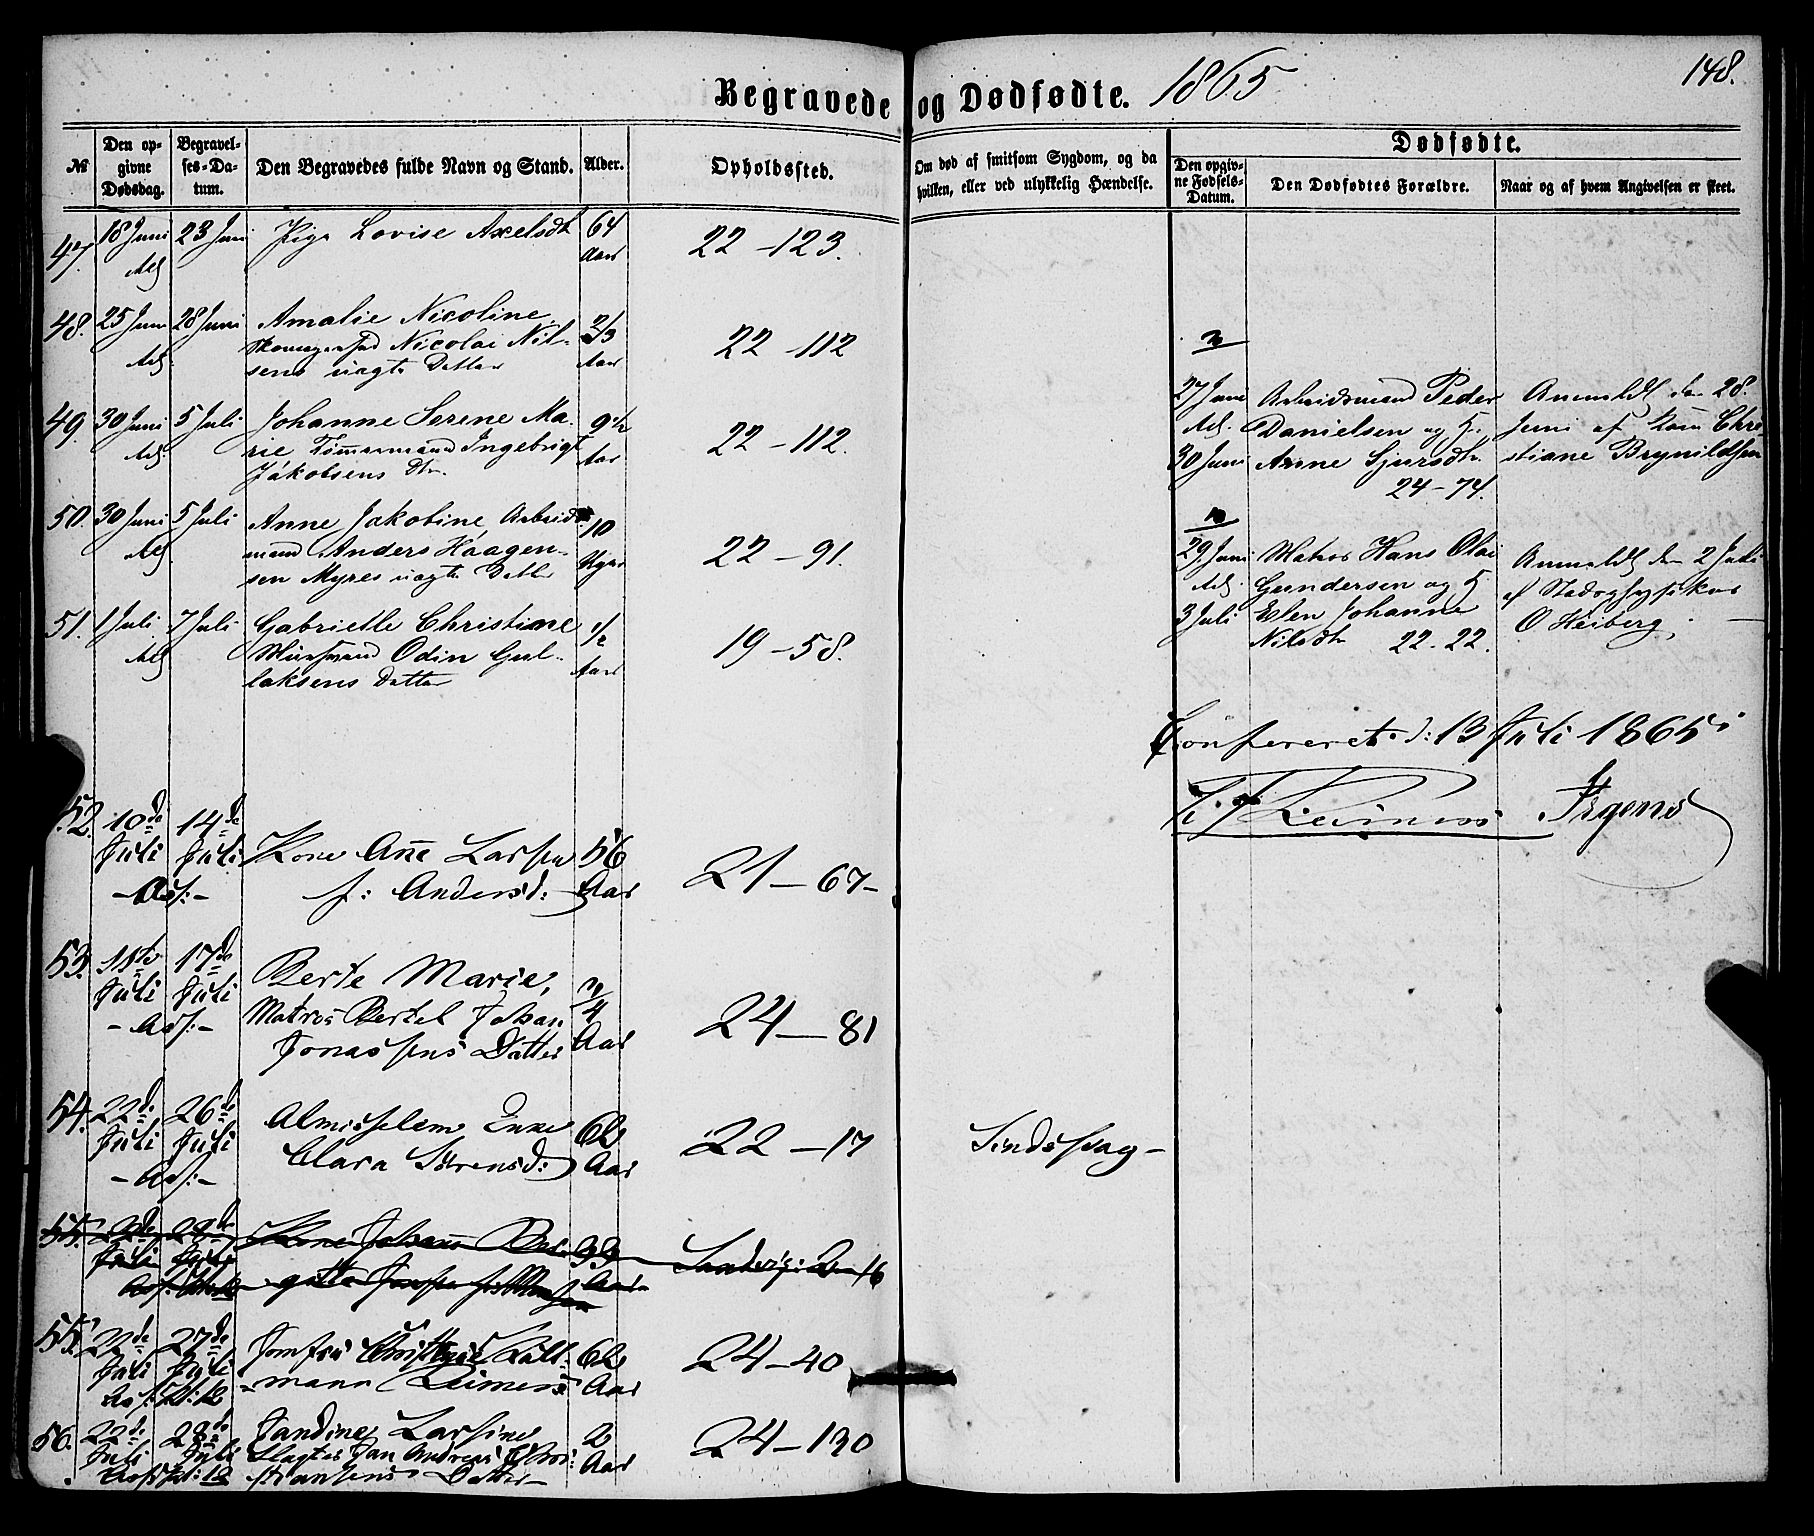 148.
Begravede og Dødfødte. 1865
№
Den opgivne Dødsdag.
Begravelses-Datum.
Den Begravedes fulde Navn og Stand.
Alder.
Opholdssted.
Om død af smitsom Sygdom, og da
hvilken, eller ved ulykkelig Hændelse.
Dødfødte.
Den opgivne Fødsels-Datum.
Den Dødfødtes Forældre.
Naar og af hvem Angivelsen er skeet.
47. 18 Juni 23 Juni Pige Lovise Axelsdt 64 22-123.
Aar
48. 25 Juni 28 Juni Amalie Nicoline 2/3 22-112
Nicolai Nil-
sens uægte Datter Aar
49. 30 Juni 5 Juli Johanne Serene Ma- 22-112.
rie Tømmermand Ingebrigt Aar
Jakobsens Dtr.
50. 30 Juni 5 Juli Anne Jakobine, Arbeids 10 22-91.
mand Anders Haagen-
sen Myres uægte Datter
51. 1 Juli 7 Juli Gabrielle Christine 1/2 19-58.
Muurmand Odin Gul-
laksens Datter Aar
52. 10de 14de
Juli Juli Kone Ane Larsen 56 21-67-
f: Andersd: Aar
53. 11te 17de Berte Marie, 3/4
Juli Juli Matros Bertel Johan 24-81
Jonassens Datter Aar
54. 22de 26de Almisselem Enke 62
Juli Juli Clara Sørensd: Aar 22-17 Sindssvag-
55. 28de Kone 33
Juli Aar
55. 22de 27de Jomfru 62 24-40
Juli Juli mann Reimers Aar
56. 22de 28de Jandine Larsine 2 24-130
Juli Juli Slagter Jan Andreas Chri-
stiansens Datter Aar
3
27 Juni Arbeidsmand Peder Anmeldt den 28.
Danielsen og H. Juni af Kone Chri-
30 Juni Anne Sjursdtr. stiane Brynildsen
24-74.
10
29. Juni Matros Hans Olai Anmeldt den 2 Juli
Gundersen og H. af Stadsphysikus
3 Juli Elen Johanne O Heiberg.
Nilsdtr 22-22.
Confereret d: 13 Juli 1865
Reimers Irgens